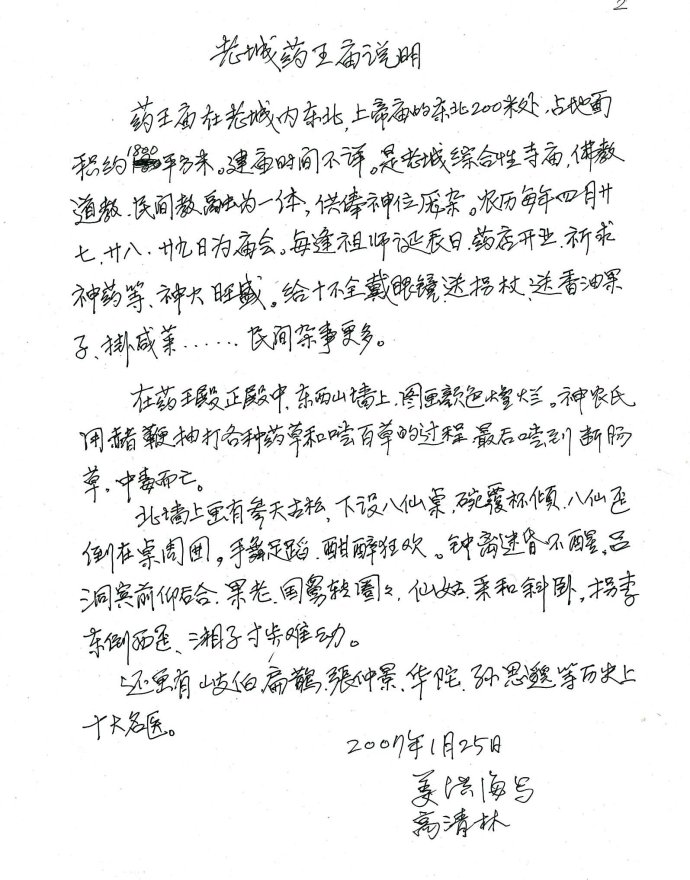 2
老城药王庙说明
药王庙在老城内东北,上帝庙的东北200米处,占地面
积约1800平方米。建庙时间不详。是老城综合性寺庙,佛教
道教、民间教融为一体,供俸神位居杂。农历每年四月廿
七、廿八、廿九日为庙会。每逢祖师诞辰日、药店开业、祈求
神药等、神火旺盛。给十不全戴眼镜送拐杖、送香油果
子、掛咸菜……民间杂事更多。
在药王殿正殿中、东西山墙上、图画颜色煌烂。神农氏
用赭鞭抽打各种药草和嚐百草的过程 最后嚐到断肠
草,中毒而亡。
北墙上画有参天古松,下设八仙桌,碗覆杯倾、八仙歪
倒在桌周囲,手舞足蹈、酣醉狂欢。钟离迷昏不醒,吕
洞宾前仰后合、果老、国舅转圈々、仙姑、采和斜卧,拐李
东倒西歪、湘子寸步难动。
还画有岐伯扁鹊、張仲景、华陀、孙思邈等历史上
十大名医。
2007年1月25日
姜洪海写
高清林